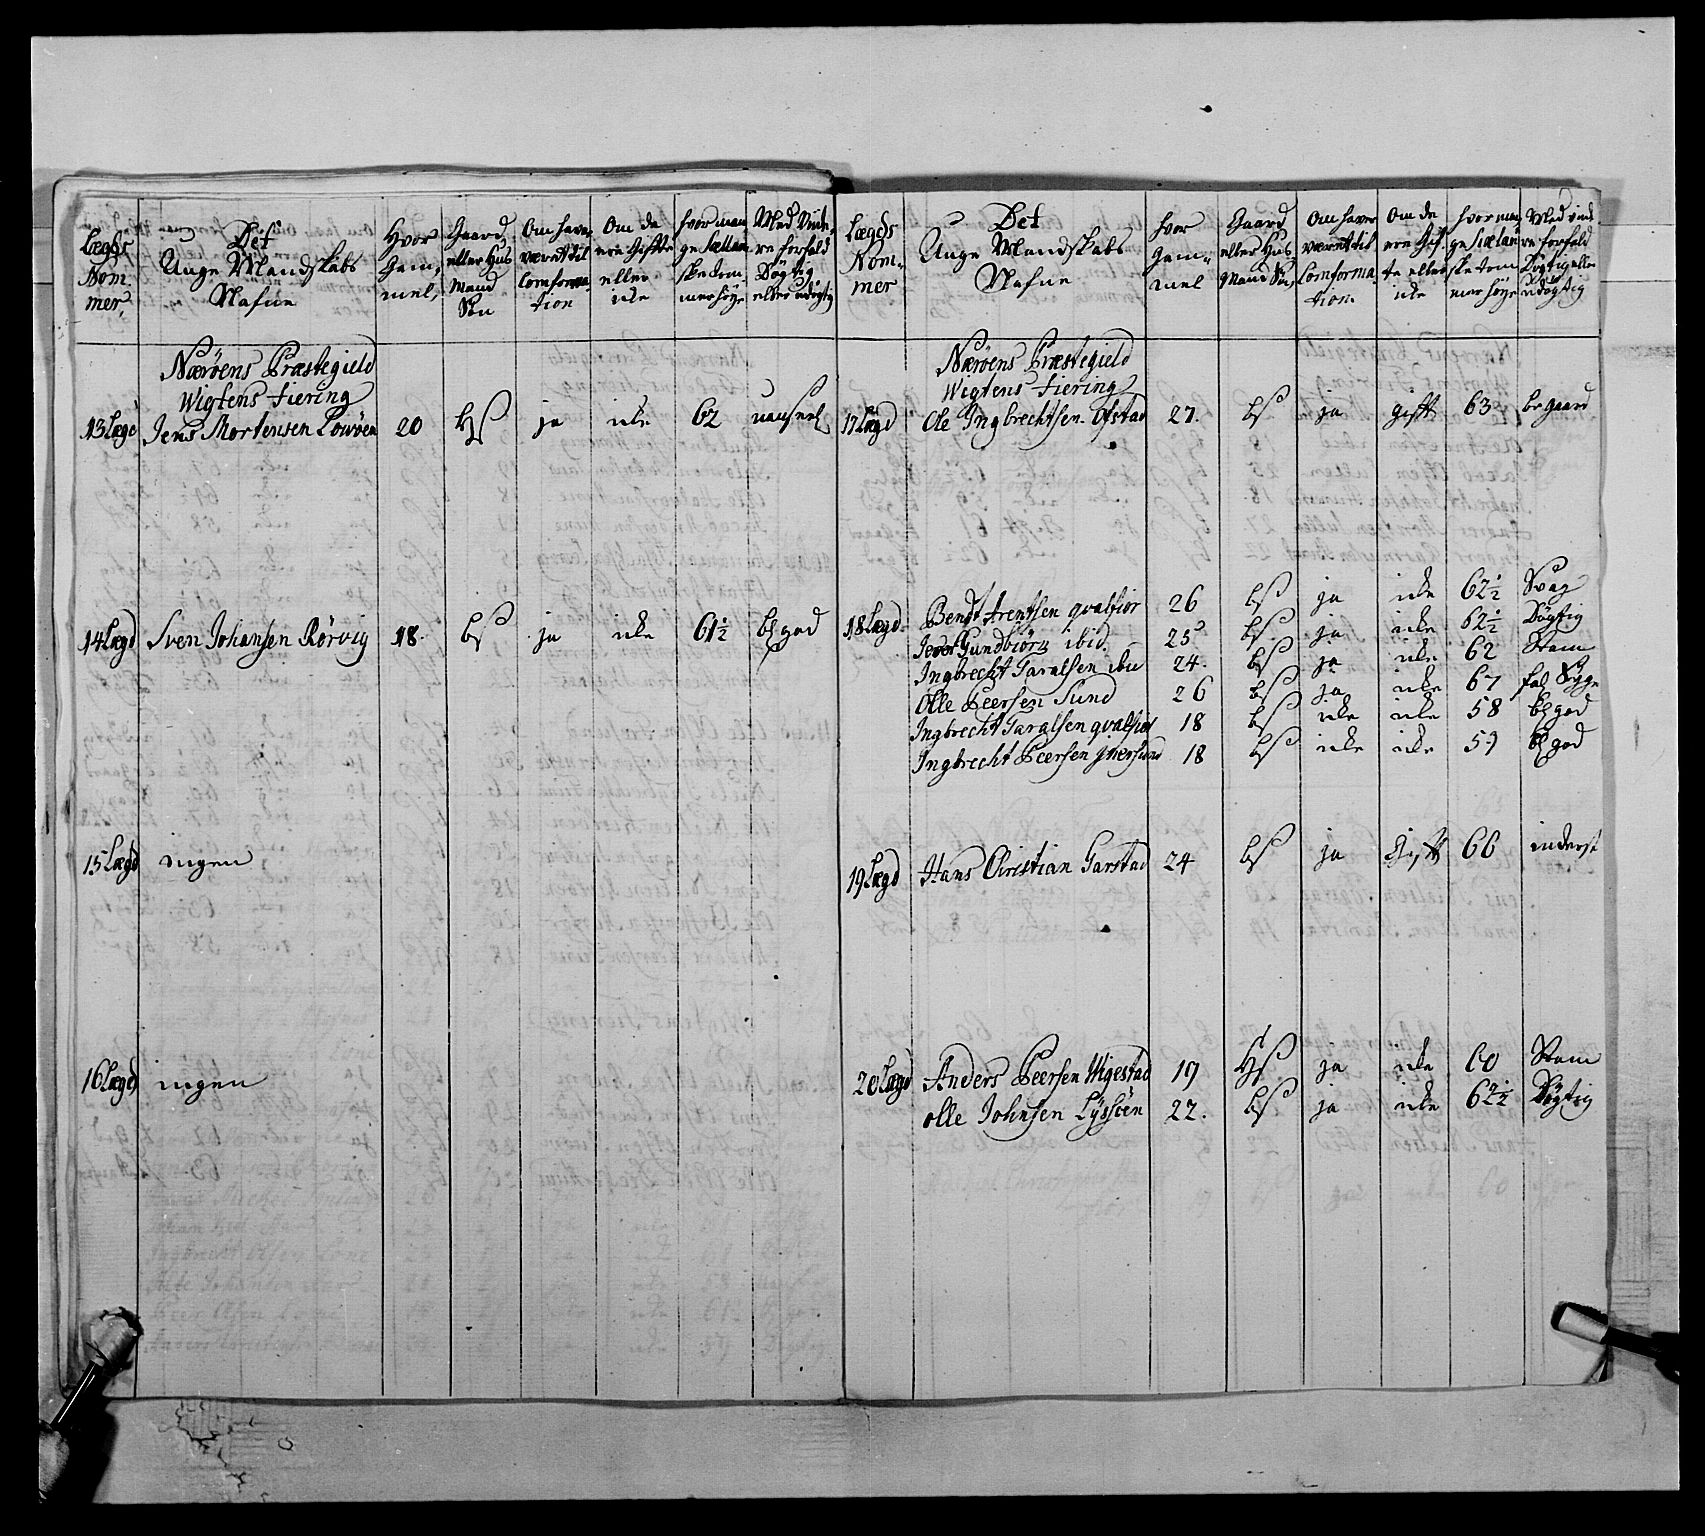 Lægds Nom: mer,
Det Unge Mandskabs Nafne
Hvor Gam: mel,
Gaard eller Huus Mand Søn
Om have været til Comforma tion
Om de ere Gifte eller icke
hvor man ge Siællan ske tom mer høye
Med Vide re forfald Døgtig eller udøgtig
Nærøens Præstegield
Wigtens Fiering
13 Lægd Jens Mortensen 20 HS ja icke 62
14 Lægd Sven Johansen Rørvig 18. bS ja icke 61½ bl god
15 Lægd ingen
16 Lægd ingen
Lægds Nom: mer
Det Unge Mandskabs Nafne
hvor Gam: mel
Gaard eller Hus Mand Søn
Om haver været til Comforma tion
Om de ere Gif te eller icke
hvor man ge Siælan ske tom mer høye
Med vide re forfald Døgtig eller udøgtig
Nærøens Præstegield
Wigtens Fiering
17 Lægd Ole Ingbrechtsen Ofstad 27. bS ja gift 63 be gaard
18 Lægd Bendt Arentsen qvalfior 26 bS ja icke 62½ Svag
Gundbiørn ibid. 25 bS ja icke 62½ Døgtig
Ingbrecht Garalsen ibid 24. bS ja icke 62 Stam
Olle Peersen Sund 26 bS ja icke 67 fal Syge
Ingbrecht Garalsen qvalfior 18 bS icke icke 58 bl god
Ingbrecht Peersen 18 bS icke icke 59 bl god
19 Lægd Hans Christian Garstad 24 bS ja Gift 60 inderst
20 Lægd Anders Peersen Wigestad 19 HS ja icke 60 Stam
olle Johnsen Lyssøen 22. bS ja icke 62½ Døgtig